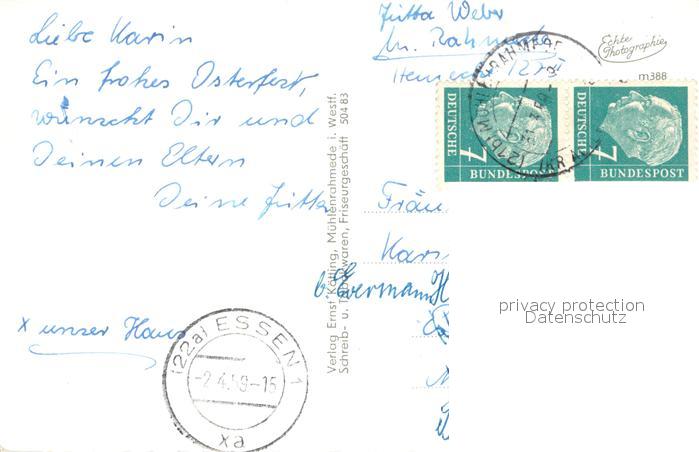 Liebe Karin
Ein frohes Osterfest,
wünscht Dir und
Deinen Eltern
Deine Jutta
x unser Haus
(22a) ESSEN 1
-2.4.59-15
xa
Verlag Ernst Kötting, Mühlenrahmede i. Westf.
Schreib- u. Tabakwaren, Friseurgeschäft 504 83
Jutta Weber
Echte
Photographie
m388
DEUTSCHE
7
BUNDESPOST
DEUTSCHE
7
BUNDESPOST
Fräu
Kari
privacy protection
Datenschutz